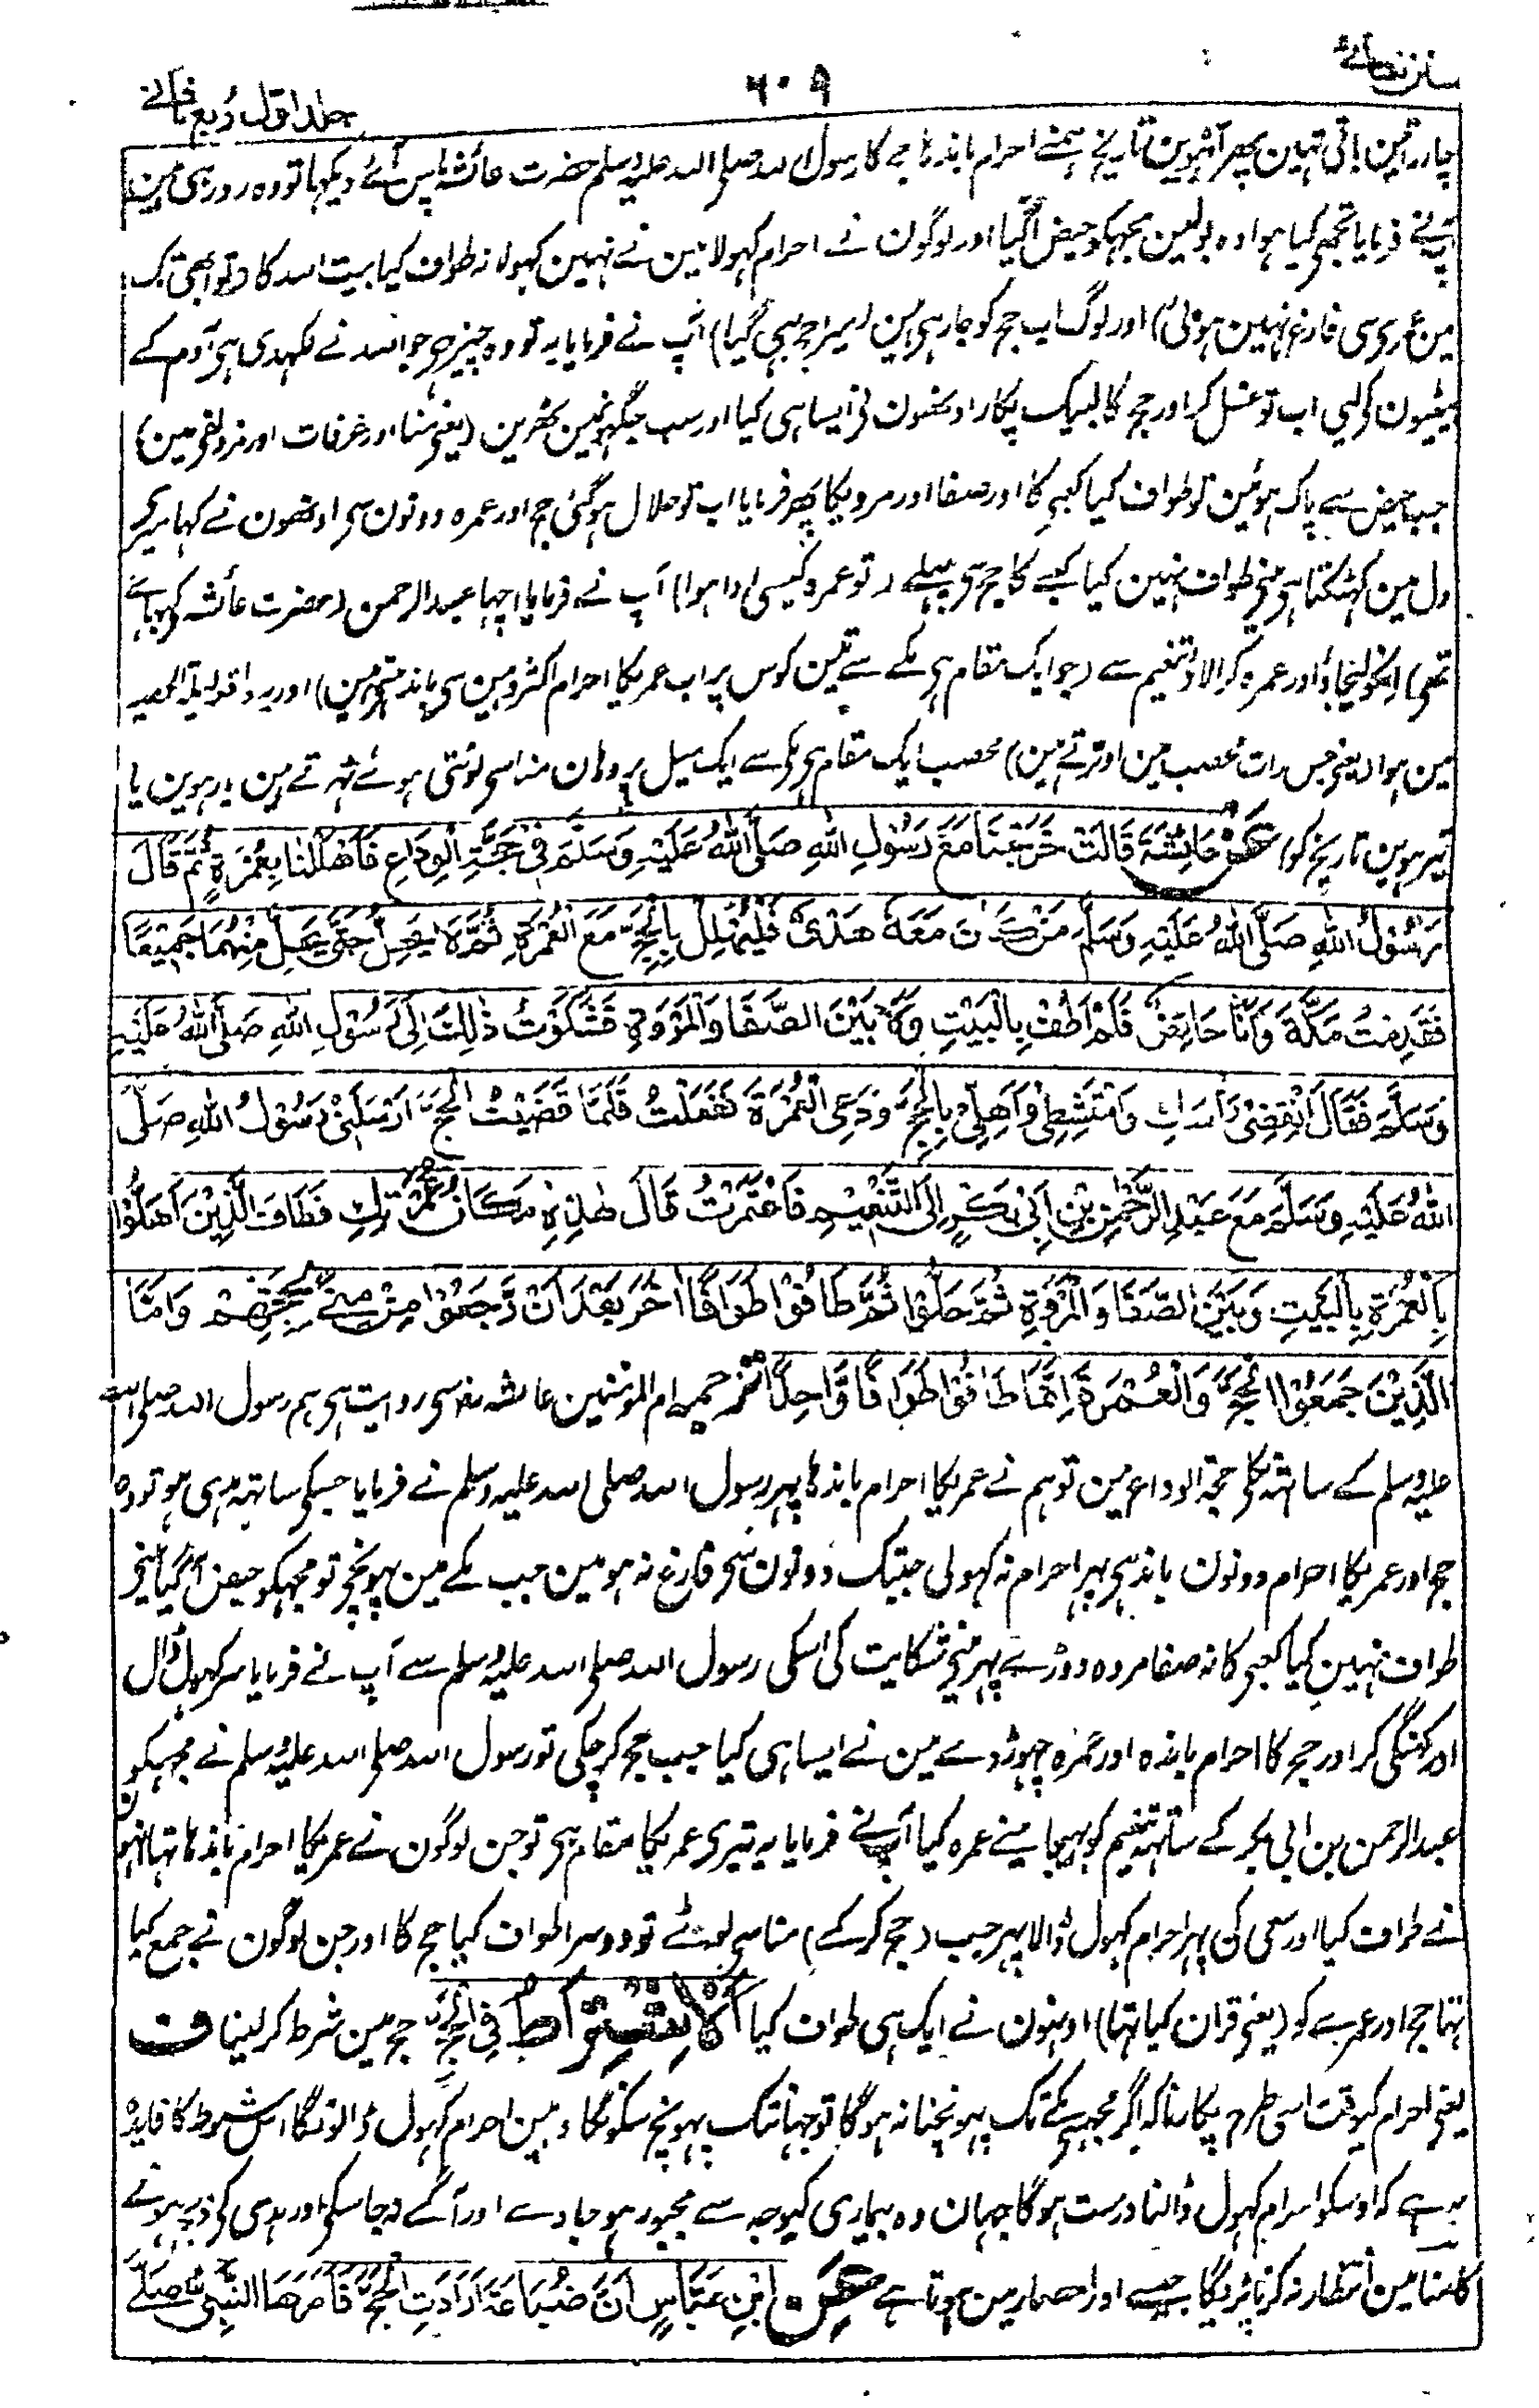 سنن نسائی
۶۰۹
جلد اول ربع ثانے
چار راتین باقی تہین پھر آٹھوین تاریخ ہمنے احرام باندہا حج کا رسول اللہ صلی اللہ علیہ وسلم حضرت عائشہ پاس آئے دیکہا تو وہ رو رہی ہین
آپنے فرمایا تجھے کیا ہوا وہ بولین مجہکو حیض آگیا اور لوگون نے احرام کہولا مین نے نہین کہولا نہ طواف کیا بیت اللہ کا (تو ابھی تک
مین عمری سی فارغ نہین ہوئی) اور لوگ اب حج کو جا رہی ہین (میرا حج بہی گیا) آپ نے فرمایا یہ تو وہ چیز ہی جو اللہ نے لکہدی ہی آدم کے
بیٹیون کی لیی اب تو غسل کر اور حج کا لبیک پکار اونہون نی ایسا ہی کیا اور سب جگہونمین ٹھرین (یعنی منا اور عرفات اور مزدلفی مین)
جب حیض سے پاک ہوئین تو طواف کیا کعبی کا اور صفا اور مرویکا پھر فرمایا اب تو حلال ہوگئی حج اور عمرہ دونون سی اونھون نے کہا میری
دل مین کہٹکتا ہی مینی طواف نہین کیا کعبے کا حج سی پہلے (تو عمرہ کیسی ادا ہوا) آپ نے فرمایا اچہا عبد الرحمن (حضرت عائشہ کی بہائی
تھی) انکو لیجاؤ اور عمرہ کرا لاؤ تنعیم سے (جو ایک مقام ہی مکے سے تین کوس پر اب عمریکا احرام اکثر وہین سی باندہتی ہین) اور یہ واقعہ لیلۃ الحصبہ
مین ہوا (یعنی جس رات محصب مین اوترتے ہین) محصب ایک مقام ہی مکی سے ایک میل پر وہان منا سی لوٹتی ہوئے ٹھرتے ہین بارہوین یا
تیرہوین تاریخ کو) عَنْ عَائِشَةَ قَالَتْ خَرَجْنَا مَعَ رَسُوْلِ اللّٰهِ صَلَّى اللّٰهُ عَلَيْهِ وَسَلَّمَ فِيْ حَجَّةِ الْوِدَاعِ فَاَهْلَلْنَا بِعُمْرَةٍ ثُمَّ قَالَ
رَسُوْلُ اللّٰهِ صَلَّى اللّٰهُ عَلَيْهِ وَسَلَّمَ مَنْ كَانَ مَعَهٗ هَدْيٌ فَلْيُهْلِلْ بِالْحَجِّ مَعَ الْعُمْرَةِ ثُمَّ لَا يَحِلُّ حَتّٰى يَحِلَّ مِنْهُمَا جَمِيْعًا
فَقَدِمْتُ مَكَّةَ وَاَنَا حَائِضٌ فَلَمْ اَطُفْ بِالْبَيْتِ وَلَا بَيْنَ الصَّفَا وَالْمَرْوَةِ فَشَكَوْتُ ذٰلِكَ اِلٰى رَسُوْلِ اللّٰهِ صَلَّى اللّٰهُ عَلَيْهِ
وَسَلَّمَ فَقَالَ انْقُضِيْ رَأْسَكِ وَامْتَشِطِيْ وَاَهِلِّيْ بِالْحَجِّ وَدَعِي الْعُمْرَةَ فَفَعَلْتُ فَلَمَّا قَضَيْتُ الْحَجَّ اَرْسَلَنِيْ رَسُوْلُ اللّٰهِ صَلَّى
اللّٰهُ عَلَيْهِ وَسَلَّمَ مَعَ عَبْدِ الرَّحْمٰنِ بْنِ اَبِيْ بَكْرٍ اِلَى التَّنْعِيْمِ فَاعْتَمَرْتُ قَالَ هٰذِهِ مَكَانُ عُمْرَتِكِ فَطَافَ الَّذِيْنَ اَهَلُّوْا
بِالْعُمْرَةِ بِالْبَيْتِ وَبَيْنَ الصَّفَا وَالْمَرْوَةِ ثُمَّ حَلُّوْا ثُمَّ طَافُوْا طَوَافًا اٰخَرَ بَعْدَ اَنْ رَّجَعُوْا مِنْ مِنًى لِحَجِّهِمْ وَاَمَّا
الَّذِيْنَ جَمَعُوا الْحَجَّ وَالْعُمْرَةَ اِنَّمَا طَافُوْا طَوَافًا وَّاحِدًا ترجمہ ام المومنین عائشہ رض سی روایت ہی ہم رسول اللہ صلی اللہ
علیہ وسلم کے ساتھ نکلی حجۃ الوداع مین تو ہم نے عمریکا احرام باندہا پہر رسول اللہ صلی اللہ علیہ وسلم نے فرمایا جسکی ساتہہ ہدی ہو تو وہ
حج اور عمریکا احرام دونون باندہی پہر احرام نہ کہولی جبتک دونون سی فارغ نہ ہو مین جب مکے مین پہونچی تو مجہکو حیض آگیا مینی
طواف نہین کیا کعبی کا نہ صفا مروہ دوڑے پہر مینی شکایت کی اسکی رسول اللہ صلی اللہ علیہ وسلم سے آپ نے فرمایا سر کہول ڈال
اور کنگی کر اور حج کا احرام باندہ اور عمرہ چہوڑ دے مین نے ایسا ہی کیا جب حج کر چکی تو رسول اللہ صلی اللہ علیہ وسلم نے مجہکو
عبد الرحمن بن ابی بکر کے ساتہہ تنعیم کو بہیجا مینے عمرہ کیا آپنے فرمایا یہ تیری عمریکا مقام ہی تو جن لوگون نے عمریکا احرام باندہا تہا انہون
نے طواف کیا اور سعی کی پہر احرام کہول ڈالا پہر جب (حج کر کے) منا سی لوٹے تو دوسرا طواف کیا حج کا اور جن لوگون نے جمع کیا
تہا حج اور عمرے کو (یعنی قران کیا تہا) اونہون نے ایک ہی طواف کیا اَلْاِشْتِرَاطُ فِي الْحَجِّ حج مین شرط کر لینا ف
یعنی احرام کیوقت اسی طرح پکارنا کہ اگر مجہسی مکے تک پہونچنا نہ ہوگا تو جہانتک پہونچ سکونگا وہین احرام کہول ڈالونگا اس شروط کا فایدہ
یہ ہے کہ اوسکو احرام کہول ڈالنا درست ہوگا جہان وہ بیماری کیوجہ سے مجبور ہو جاوے اور آگے نہ جا سکی اور ہدی کی ذبح ہونے
کا منا مین انتظار نہ کرنا پڑیگا جیسے اور احصار مین ہوتا ہے عَنِ ابْنِ عَبَّاسٍ اَنَّ ضُبَاعَةَ اَرَادَتِ الْحَجَّ فَاَمَرَهَا النَّبِيُّ صَلَّى